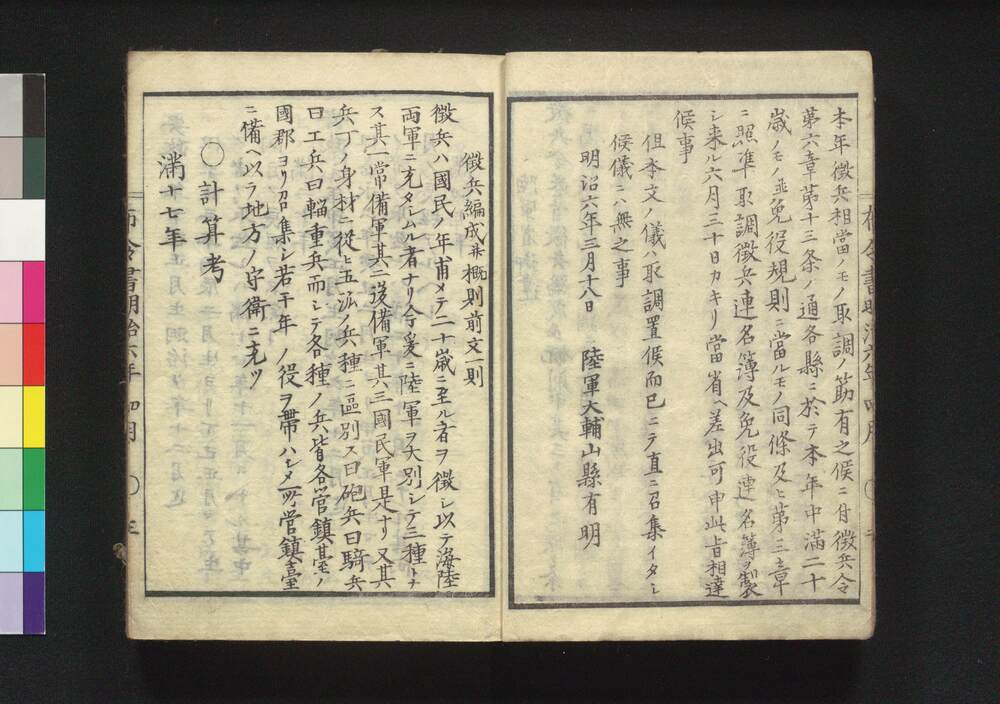 本年徴兵相當ノモノ取調ノ筋有之候ニ付徴兵令
第六章第十三条ノ通各縣ニ於テ本年中滿二十
歳ノモノ並免役規則ニ當ルモノ同條及ヒ第三章
ニ照準取調徴兵連名簿及免役連名簿ヲ製
シ来ル六月三十日カキリ當省ヘ差出可申此旨相達
候事
但本文ノ儀ハ取調置候而已ニテ直ニ召集イタシ
候儀ニハ無之事
明治六年三月十八日
陸軍大輔山縣有朋
徴兵編成并概則前文一則
徴兵ハ國民ノ年甫メテ二十歳ニ至ル者ヲ徴シ以テ海陸
両軍ニ充タシムル者ナリ今爰ニ陸軍ヲ大別シテ三種トナ
ス其一常備軍其二後備軍其三國民軍是ナリ又其
兵丁ノ身材ニ從ヒ五法ノ兵種ニ區別ス曰砲兵曰騎兵
曰工兵曰輜重兵而シテ各種ノ兵皆各管鎮䑓ノ
國郡ヨリ召集シ若干年ノ役ヲ帶ハシメ管鎮臺
ニ備ヘ以テ地方ノ守衛ニ充ツ
〇計算考
滿十七年
布令書明治六年 四月 〇 三